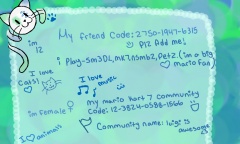 My friend Code: 2750-1947-6315
im 12
Plz Add me!
i Play: Sm3DL, mK7, nsmb2, Petz (im a big mario Fan)
I love Cats!
I love music
im Female ♀
my mario kart 7 community code: 12-3824-0588-1866
I ♡ animals
Community name: luigi is awesome